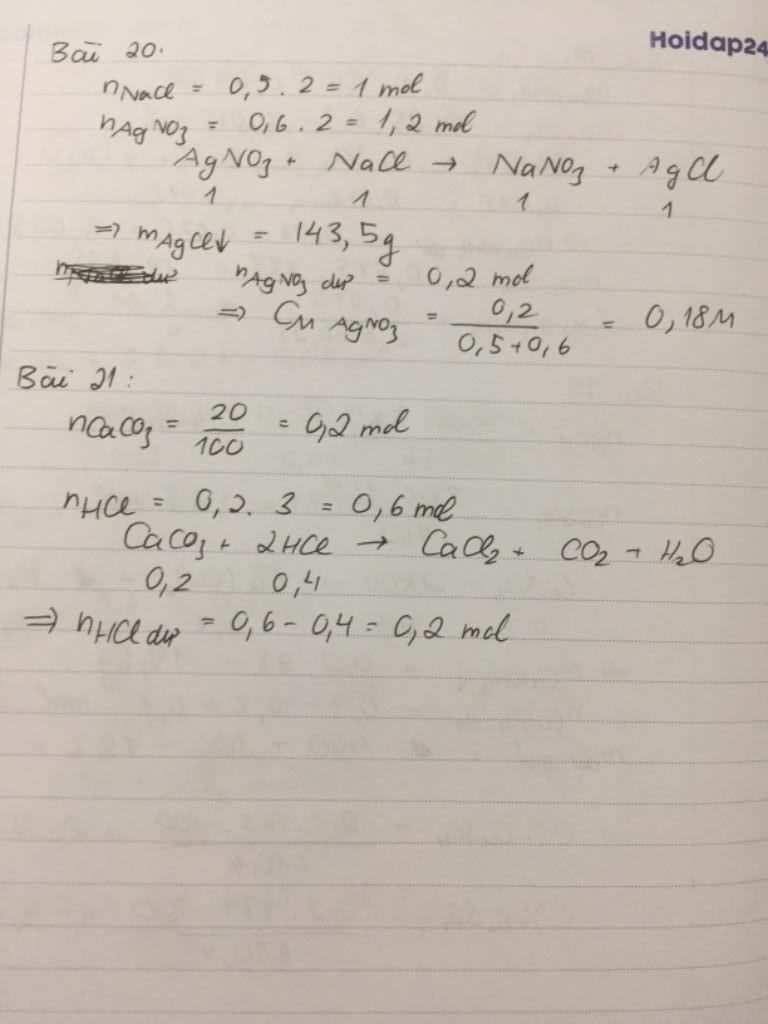 Hoidap24
Bài 20.
nNaCl = 0,5 . 2 = 1 mol
nAgNO3 = 0,6 . 2 = 1,2 mol
AgNO3 + NaCl → NaNO3 + AgCl
1 1 1 1
=> mAgCl↓ = 143,5g
nAgNO3 dư = 0,2 mol
=> CM AgNO3 = 0,2 / 0,5+0,6 = 0,18M
Bài 21:
nCaCO3 = 20 / 100 = 0,2 mol
nHCl = 0,2. 3 = 0,6 mol
CaCO3 + 2HCl → CaCl2 + CO2 + H2O
0,2 0,4
=> nHCl dư = 0,6 - 0,4 = 0,2 mol